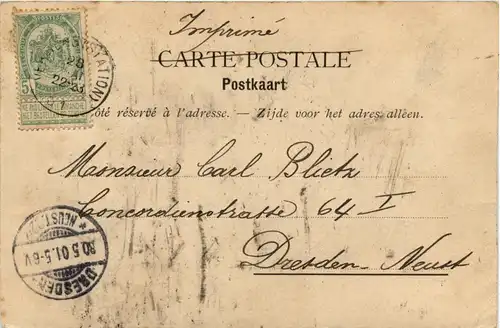 Imprimé
CARTE POSTALE
Postkaart
Côté réservé à l'adresse. — Zijde voor het adres alleen.
Monsieur Carl Blietz
Concordienstrasse 64 I
Dresden-Neust
(STATION)
28
22-23
5
* NEUST
30.5.01.5-6V
DRESDEN